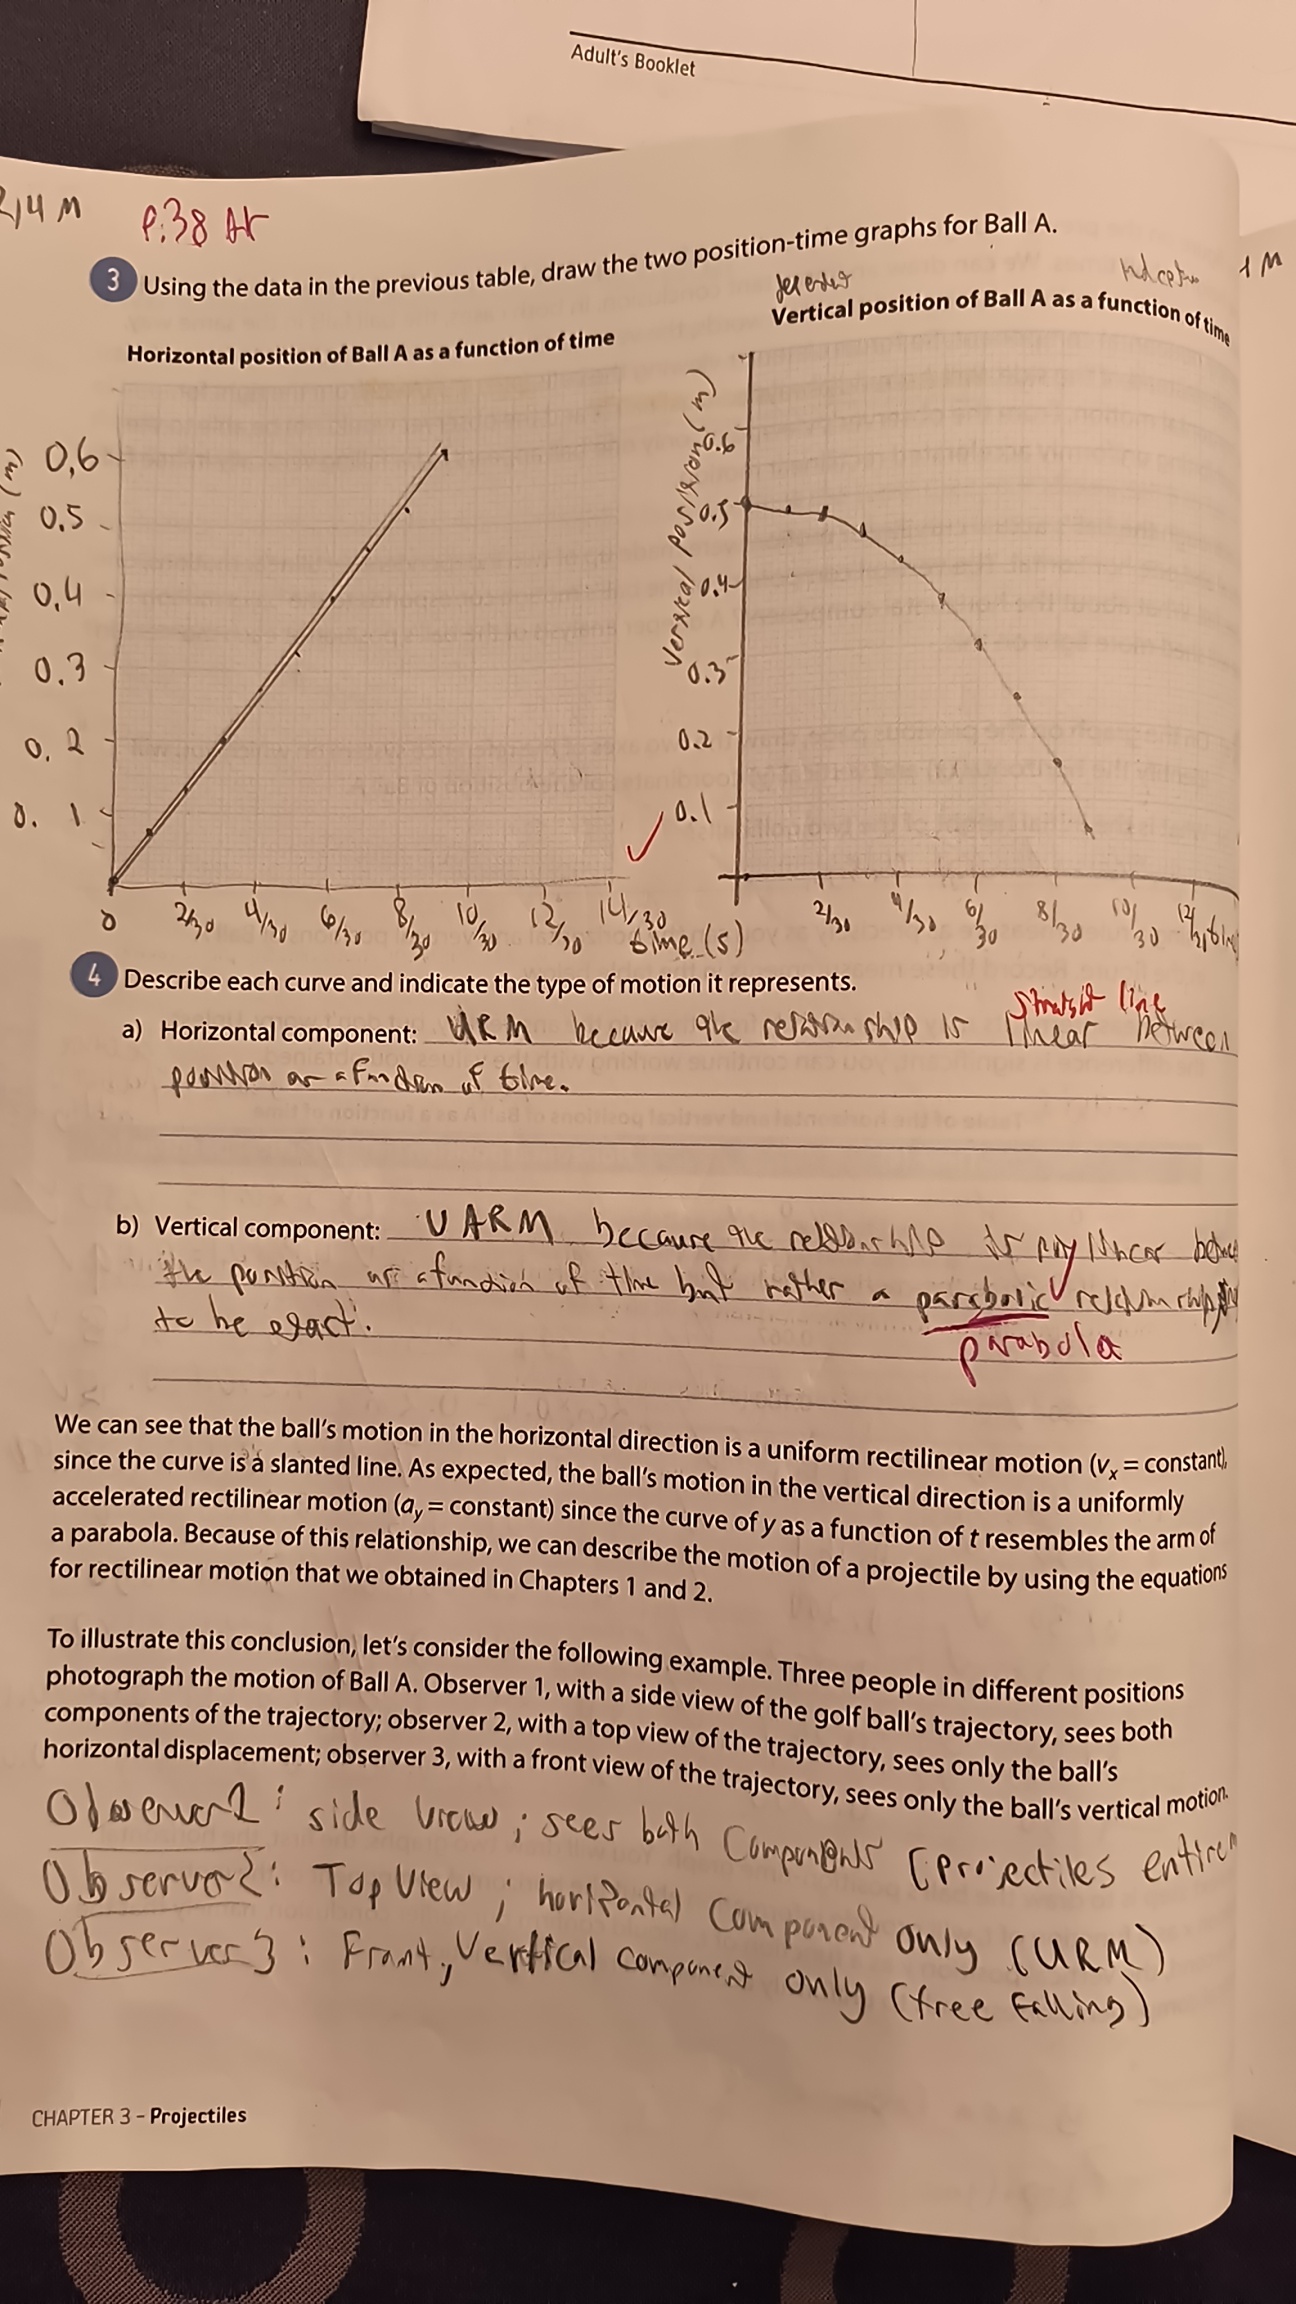 Adult's Booklet
2,4 M
P.38 At
3 Using the data in the previous table, draw the two position-time graphs for Ball A.
1 M
Horizontal position of Ball A as a function of time
Vertical position of Ball A as a function of time
(m)
0,6
0.5
0.4
0.3
0.2
0.1
0
2/30
4/30
6/30
8/30
10/30
12/30
14/30
time (s)
Vertical position (m)
0.6
0.5
0.4
0.3
0.2
0.1
2/30
4/30
6/30
8/30
10/30
4 Describe each curve and indicate the type of motion it represents.
straight line
a) Horizontal component: URM because the relationship is linear between
position as a function of time.
b) Vertical component: UARM because the relationship is
the position as a function of time but rather a parabolic relationship
to be exact.
parabola
We can see that the ball's motion in the horizontal direction is a uniform rectilinear motion (vx = constant),
since the curve is a slanted line. As expected, the ball's motion in the vertical direction is a uniformly
accelerated rectilinear motion (ay = constant) since the curve of y as a function of t resembles the arm of
a parabola. Because of this relationship, we can describe the motion of a projectile by using the equations
for rectilinear motion that we obtained in Chapters 1 and 2.
To illustrate this conclusion, let's consider the following example. Three people in different positions
photograph the motion of Ball A. Observer 1, with a side view of the golf ball's trajectory, sees both
components of the trajectory; observer 2, with a top view of the trajectory, sees only the ball's
horizontal displacement; observer 3, with a front view of the trajectory, sees only the ball's vertical motion.
Observer 1: side view; sees both components (projectiles entire
Observer 2: Top view; horizontal component only (URM)
Observer 3: Front, Vertical component only (free falling)
CHAPTER 3 – Projectiles